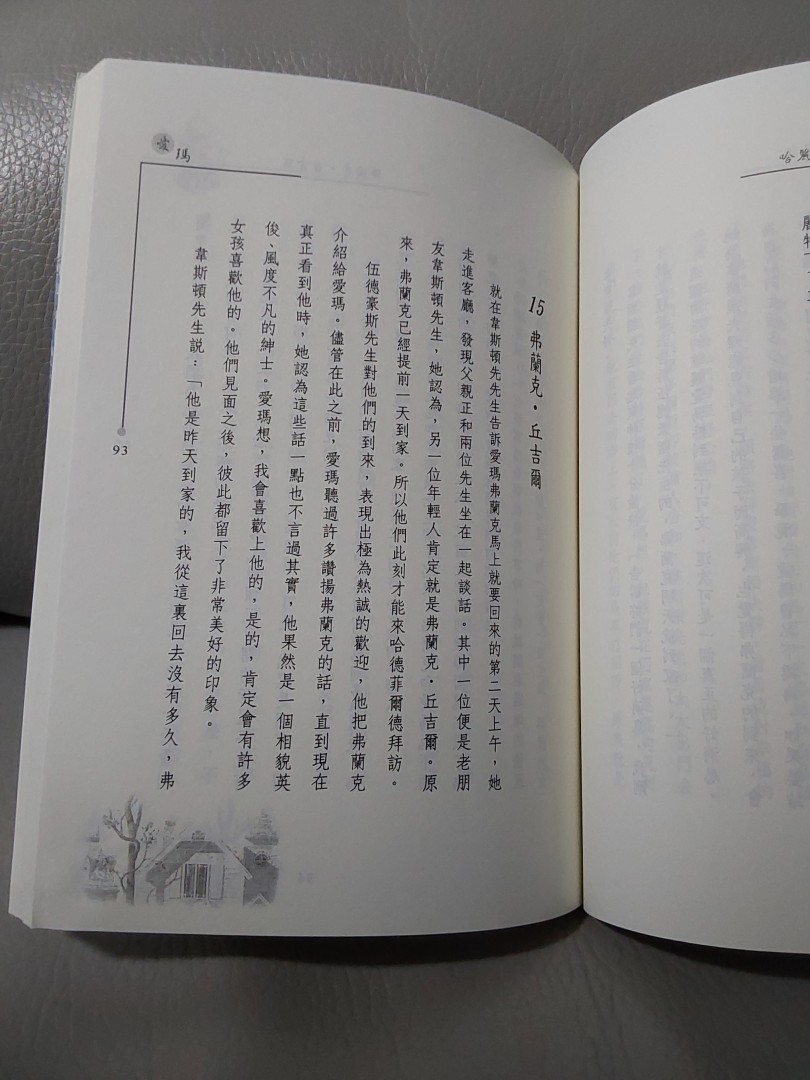 愛瑪
15 弗蘭克・丘吉爾
就在韋斯頓先生告訴愛瑪弗蘭克馬上就要回來的第二天上午，她
走進客廳，發現父親正和兩位先生坐在一起談話。其中一位便是老朋
友韋斯頓先生，她認為，另一位年輕人肯定就是弗蘭克・丘吉爾。原
來，弗蘭克已經提前一天到家。所以他們此刻才能來哈德菲爾德拜訪。
伍德豪斯先生對他們的到來，表現出極為熱誠的歡迎，他把弗蘭克
介紹給愛瑪。儘管在此之前，愛瑪聽過許多讚揚弗蘭克的話，直到現在
真正看到他時，她認為這些話一點也不言過其實，他果然是一個相貌英
俊、風度不凡的紳士。愛瑪想，我會喜歡上他的，是的，肯定會有許多
女孩喜歡他的。他們見面之後，彼此都留下了非常美好的印象。
韋斯頓先生說：「他是昨天到家的，我從這裏回去沒有多久，弗
93